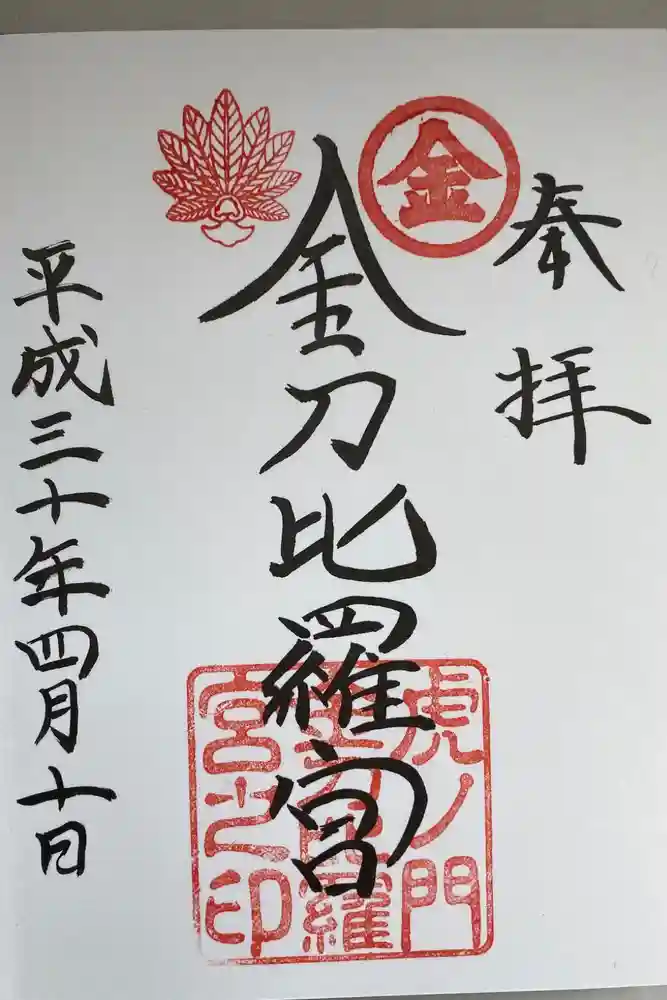 奉拝
金
金刀比羅宮
虎ノ門
金刀比羅
宮之印
平成三十年四月十日